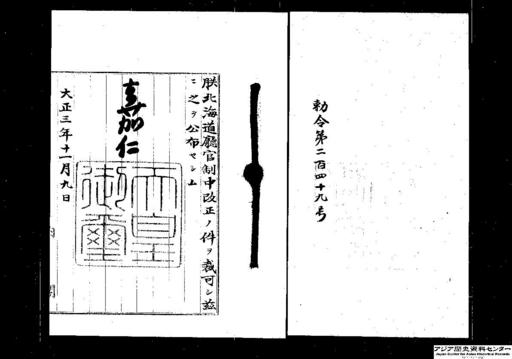 勅令第二百四十九号
朕北海道廳官制中改正ノ件ヲ裁可シ茲
ニ之ヲ公布セシム
嘉仁
天皇
御璽
大正三年十一月九日
内
閣
アジア歴史資料センター
Japan Center for Asian Historical Records